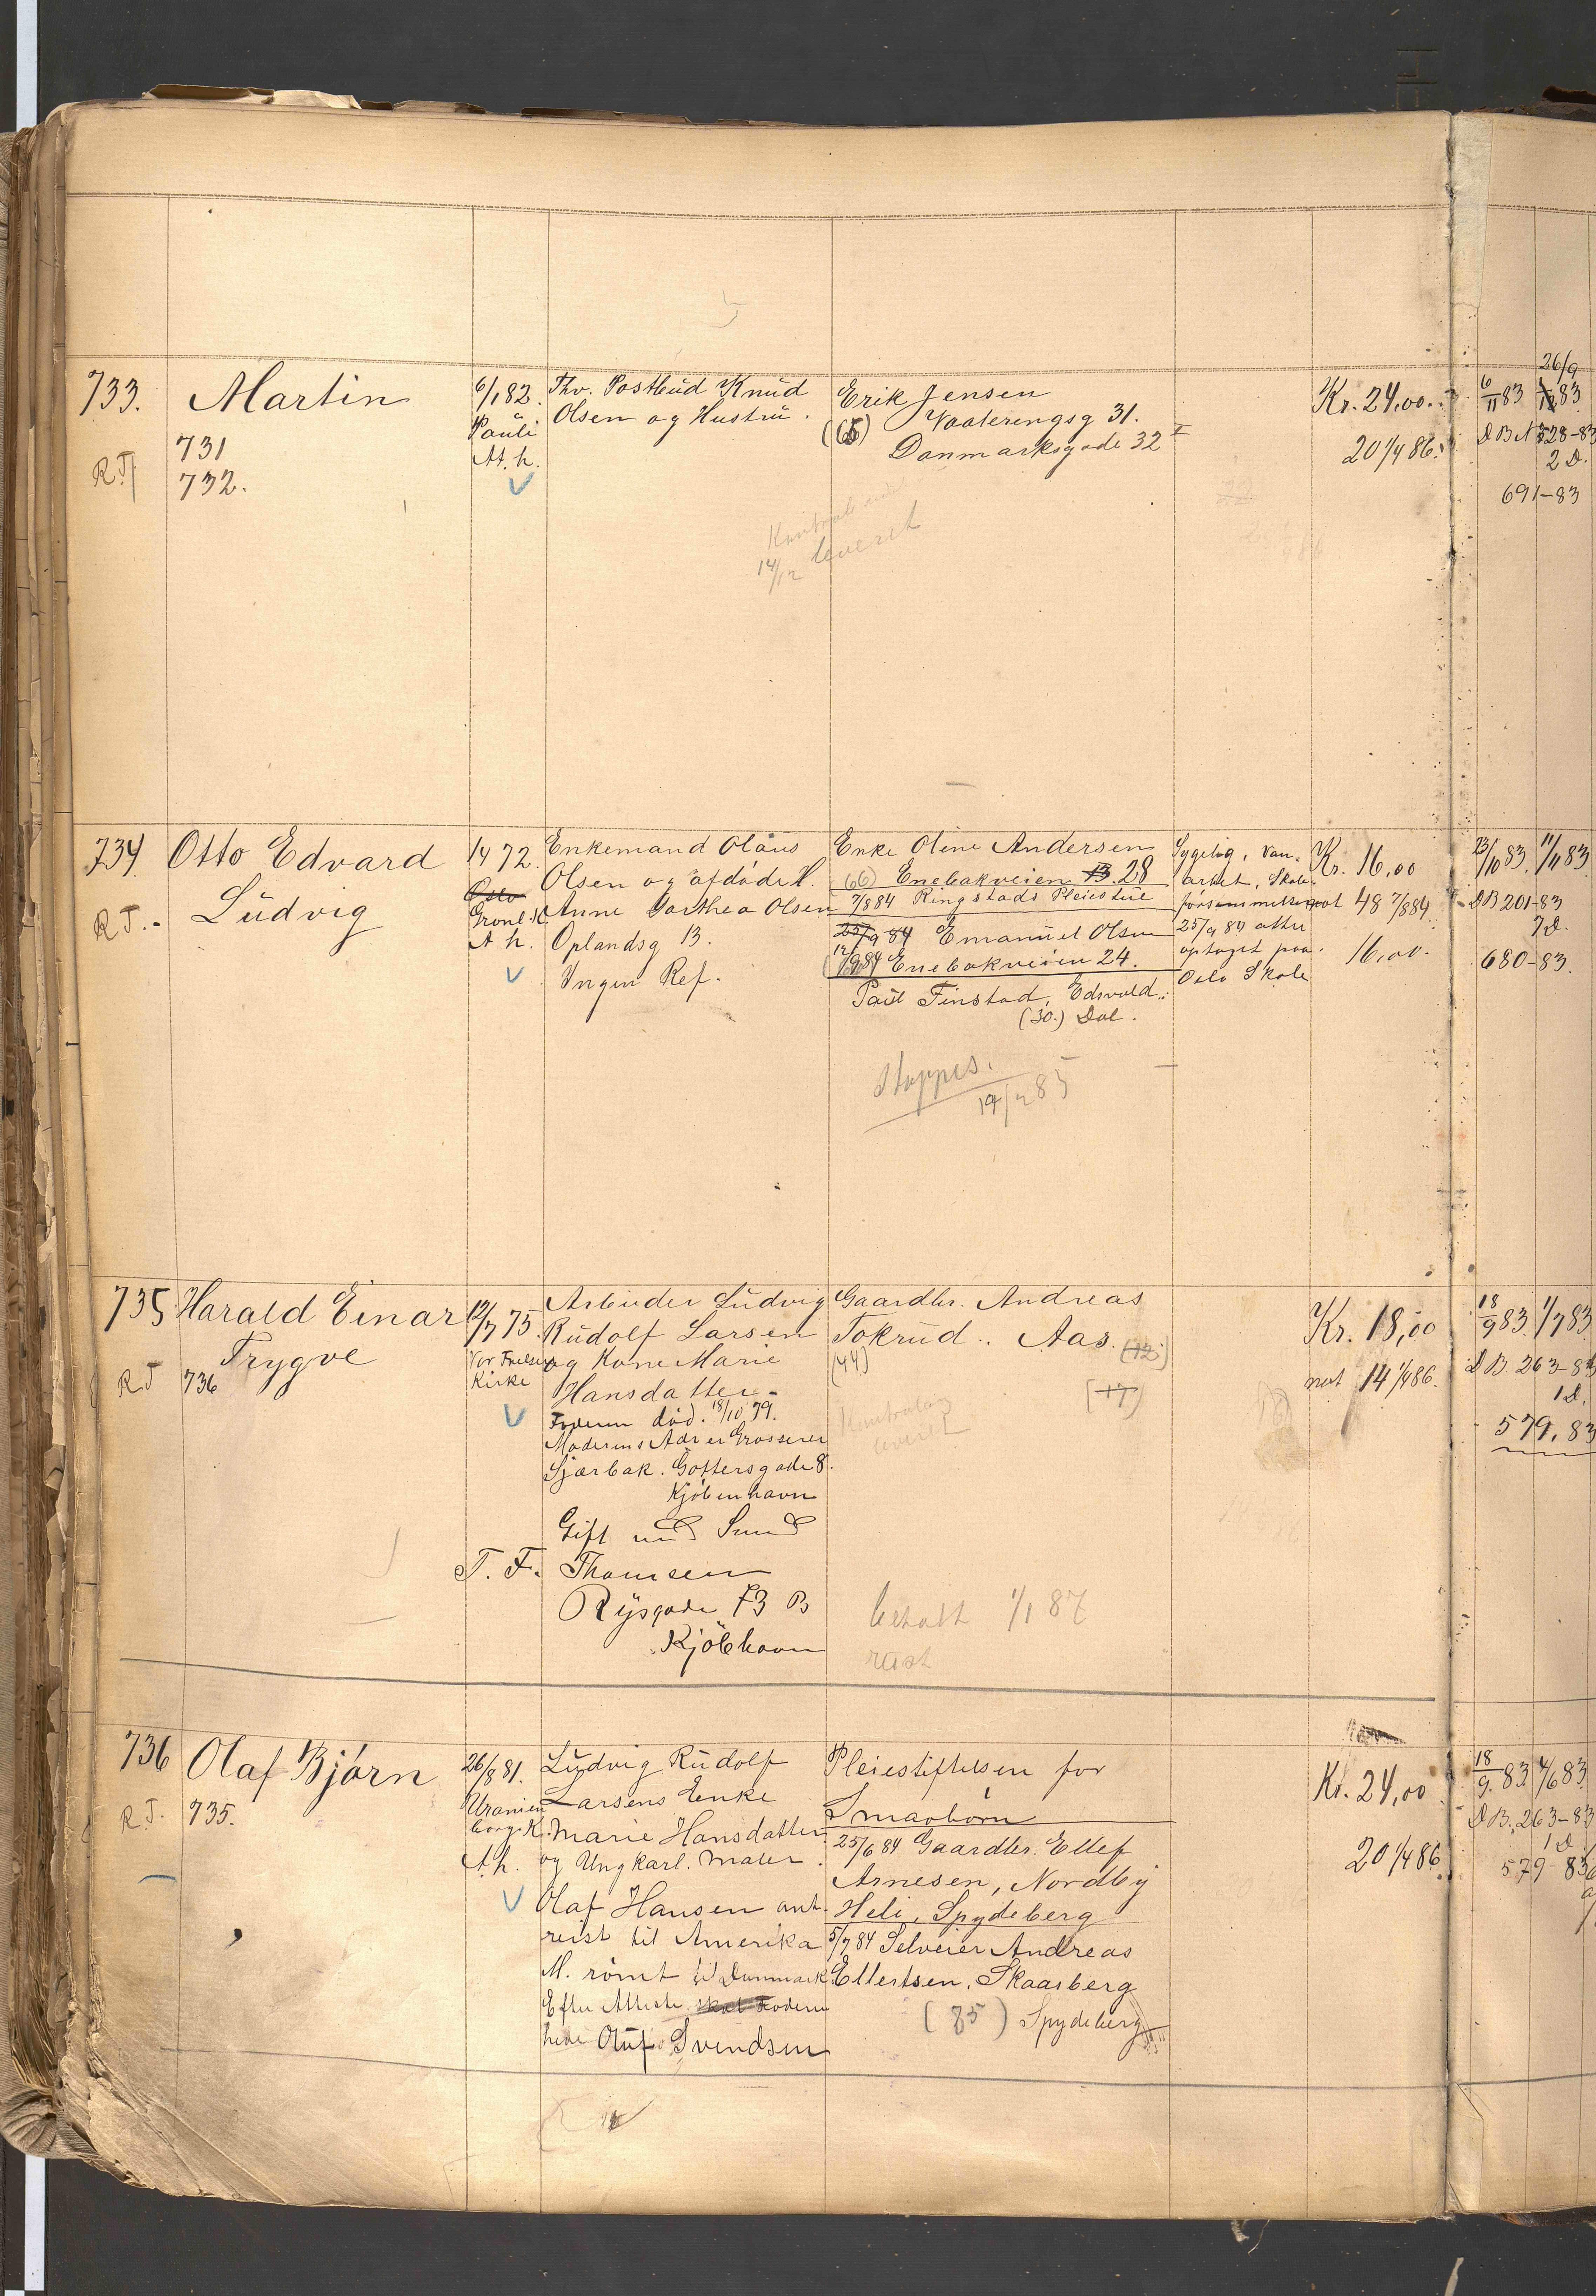 733. Martin
731
R.T. 732.
6/1 82.
Pauli
A. h.
Thv. Postbud Knud
Olsen og Hustru.
Erik Jensen
(65) Vaalerengsg 31.
Danmarksgade 32 I
Kontrol
14/12 leveret
Kr. 24,00.
20 1/4 86.
26/9
6/11 83
D B N 328-83
2 D.
691-83
734. Otto Edvard
Ludvig
R T.
1/4 72.
Oslo
Grønl. K
A h.
Enkemand Olaus
Olsen og afdøde H.
Anne Dorthea Olsen
Oplandsg 13.
Ingen Ref.
Enke Oline Andersen
(66) Enebakveien 28
7/8 84 Ringstads Pleiestue
25/9 84 Emanuel Olsen
Enebakveien 24.
Paul Finstad, Edsvold.
(30.) Dal.
Stoppes.
14/2 85
Sygelig, Van-
artet, Skole-
forsømmelser
25/9 84 atter
optaget paa
Oslo Skole
Kr. 16,00
not 48 7/8 84
16,00.
23/10 83. 11/11 83
D B 201-83
7 D.
680-83.
735 Harald Einar
Trygve
R T 736
12/7 75.
Vor Frelsers
Kirke
Arbeider Ludvig
Rudolf Larsen
og Kone Marie
Hansdatter.
Faderen død. 18/10 79.
Moderens Adr er Grosserer
Sjærbak. Gothersgade 8.
Kjøbenhavn
Gift med Smed
T. F. Thomsen
Rysgade 73 B
Kjøbhavn
Gaardbr. Andreas
Tokrud. Aas. (12)
(44)
(17)
Kontrolan
leveret
betalt 1/1 87
rest
Kr. 18,00
not 14 1/4 86.
18/9 83. 1/7 83
D B. 263-83
1 D.
579. 83
736 Olaf Bjørn
R. T. 735.
26/8 81.
Uranien
borg K.
A. h.
Ludvig Rudolf
Larsens Enke
Marie Hansdatter
og Ungkarl. Maler
Olaf Hansen ant.
reist til Amerika
M. rømt til Danmark
Efter Atteste skal Faderen
hede Oluf Svendsen
Pleiestiftelsen for
Smaabørn
25/6 84 Gaardbr. Ellef
Arnesen, Nordby
Heli, Spydeberg
5/7 84 Selveier Andreas
Ellertsen, Skaarberg
(85) Spydeberg
Kr. 24,00
20 1/4 86
18/9. 83. 4/6 83
D B. 263-83
1 D.
579-83